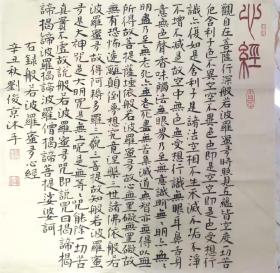 心經
觀自在菩薩行深般若波羅蜜多時照見五蘊皆空度一切苦
厄舍利子色不異空空不異色色即是空空即是色受想行
識亦復如是舍利子是諸法空相不生不滅不垢不淨
不增不減是故空中無色無受想行識無眼耳鼻舌身
意無色聲香味觸法無眼界乃至無意識界無無明亦無無
明盡乃至無老死亦無老死盡無苦集滅道無智亦無得以無
所得故菩提薩埵依般若波羅蜜多故心無罣礙無罣礙故
無有恐怖遠離顛倒夢想究竟涅槃三世諸佛依般若
波羅蜜多故得阿耨多羅三藐三菩提故知般若波羅蜜
多是大神咒是大明咒是無上咒是無等等咒能除一切苦
真實不虛故說般若波羅蜜多咒即說咒曰揭諦揭
諦波羅揭諦波羅僧揭諦菩提娑婆訶
右録般若波羅蜜多心經
辛丑秋劉俊京沐手